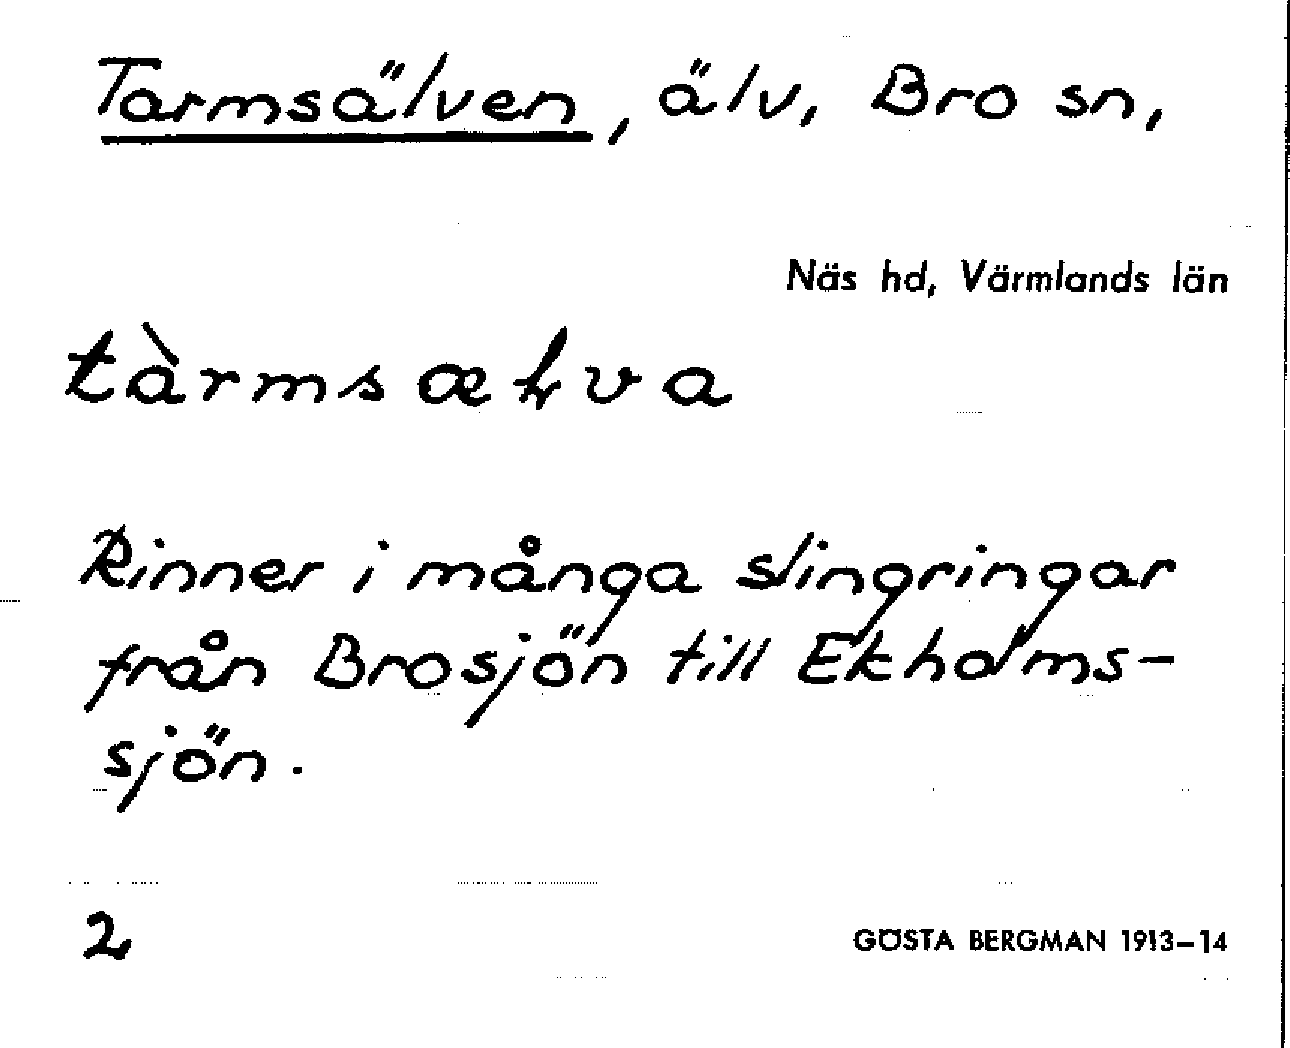 Tarmsälven, älv, Bro sn,
Näs hd, Värmlands län
tàrmsæƚva
Rinner i många slingringar
från Brosjön till Ekholms-
sjön.
2
GÖSTA BERGMAN 1913–14